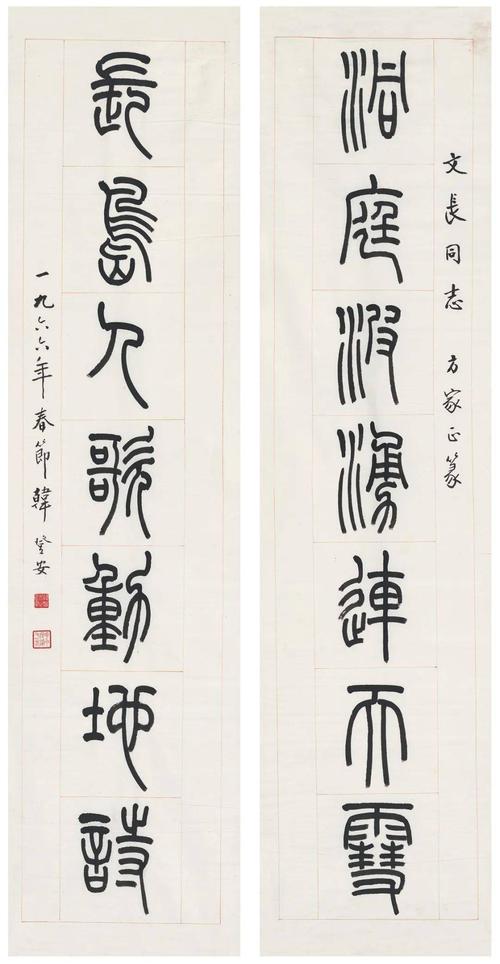 文長同志 方家正篆
洞庭波涌連天雪
長島人歌動地詩
一九六六年春節韓登安